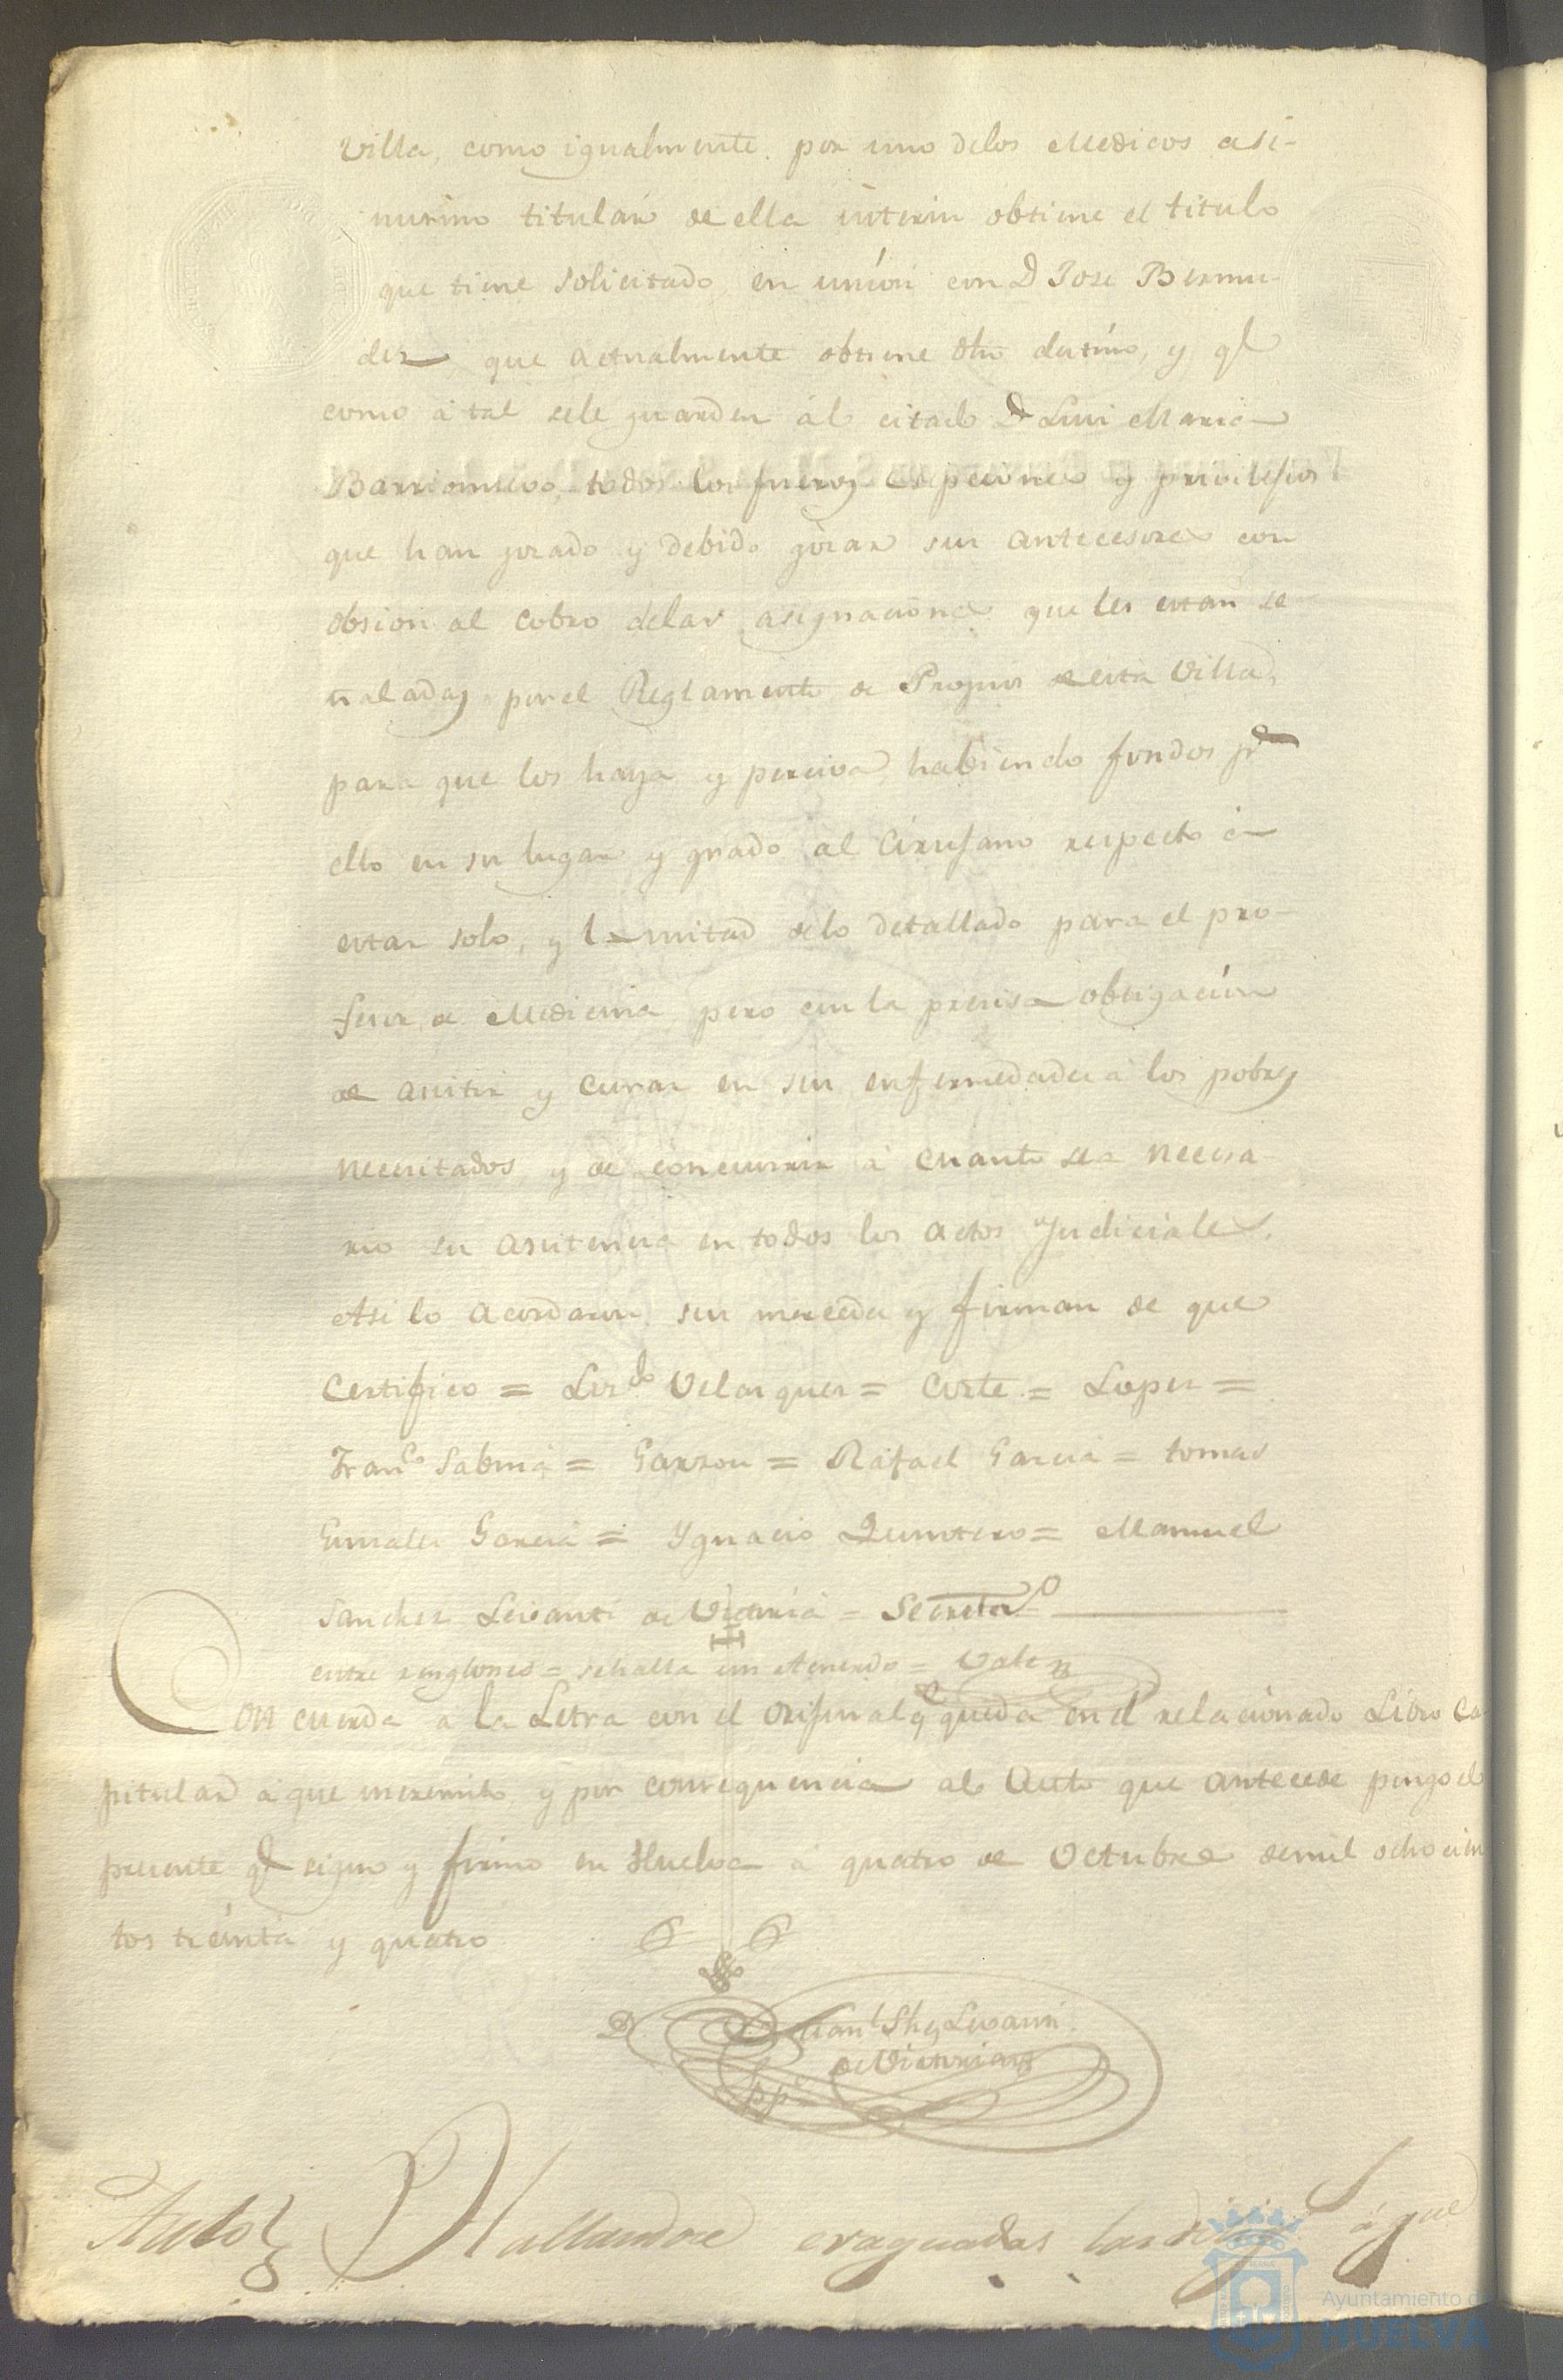 Villa, como igualmente por uno delos Medicos asi-
mismo titular de ella interin obtiene el titulo
que tiene solicitado, en union con Dn Jose Bermu-
dez, que actualmente obtiene dho destino, y qe
como á tal sele guarden ál citado Dn Luis Maria
Barrionuevo, todos los fueros esepciones y privilejios
que han gozado y debido gozar sus antecesores con
obsion al cobro delas asignaciones que les estan se
ñaladas por el Reglamento de Propios de esta Villa,
para que los haya y perciva habiendo fondos pa
ello en su lugar y grado al Cirujano respecto á
estar solo, y la mitad delo detallado para el pro-
fesor de Medicina, pero con la precisa obligacion
de asistir y curar en sus enfermedades á los pobres
necesitados, y de concurrir á cuanto sea necesa
rio su asistencia en todos los actos Judiciales.
Asi lo acordaron sus mercedes y firman de que
Certifico = Lizdo Velazquez = Corte = Lopez =
Franco Sabina = Garzon = Rafael Garcia = tomas
Gonzales Garcia = Ygnacio Quintero = Manuel
Sanchez Lisanti de Victoria = Secreto
entre renglones = se halla un Acuerdo = Vale
Concuerda a la Letra con el orijinal qe queda en el relacionado Libro Ca
pitular á que me remito y por consequencia al Auto que antecede pongo el
presente qe signo y firmo en Huelva á quatro de Octubre demil ochocien
tos treinta y quatro
Manl Shz Lisanti
de Victoria
Auto Hallandose evaguadas las dilijs á que
Ayuntamiento de
HUELVA